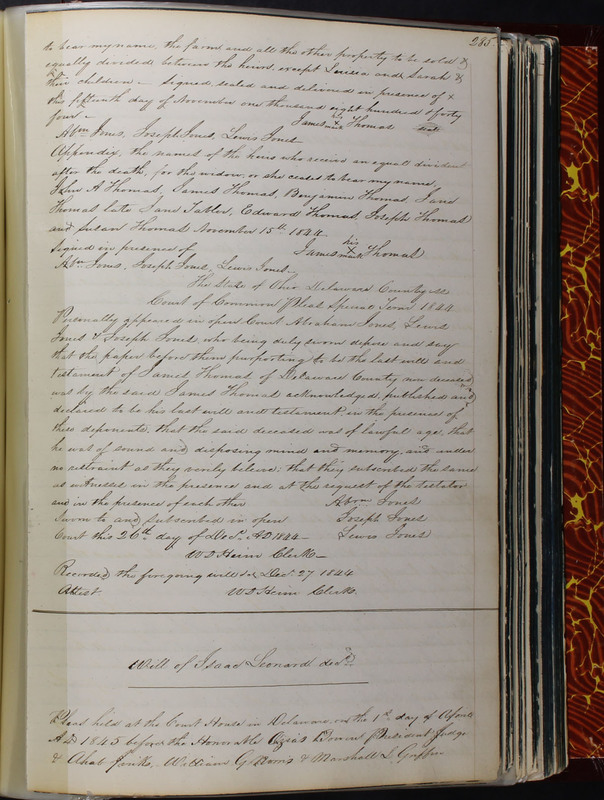 285
to bear my name, the farm and all the other property to be sold &
equally divided between the heirs, except Louisa and Sarah &
their children. – Signed, sealed and delivered in presence of
this fifteenth day of November one thousand eight hundred & forty
four –
James his x mark Thomas seal
Abm Jones, Joseph Jones, Lewis Jones
Appendix, the names of the heirs who receive an equal divident
after the death, for the widow, or she ceases to bear my name,
John A Thomas, James Thomas, Benjamin Thomas, Jane
Thomas late Jane Tatler, Edward Thomas, Joseph Thomas
and Susan Thomas November 15th 1844
Signed in presence of
James his x mark Thomas
Abm Jones, Joseph Jones, Lewis Jones
The State of Ohio Delaware County ss
Court of Common Pleas Special Term 1844
Personally appeared in open Court Abraham Jones, Lewis
Jones & Joseph Jones, who being duly sworn depose and say
that the paper before them purporting to be the last will and
testament of James Thomas of Delaware County now deceased
was by the said James Thomas acknowledged, published and
declared to be his last will and testament in the presence of
these deponents, that the said deceased was of lawful age, that
he was of sound and disposing mind and memory, and under
no restraint as they verily believe; that they subscribed the same
as witnesses in the presence and at the request of the testator
and in the presence of each other
Abrm Jones
Sworn to and subscribed in open
Joseph Jones
Court this 26th day of Decr AD 1844 –
Lewis Jones
W D Heim Clerk –
Recorded the foregoing will &c Decr 27 1844
Attest
W D Heim Clerk
Will of Isaac Leonard decd
Pleas held at the Court House in Delaware, on the 1st day of April
AD 1845 before the Honorable Ozias Bowen President Judge
& Ahab Jinks, William G Norris & Marshall L Griffin